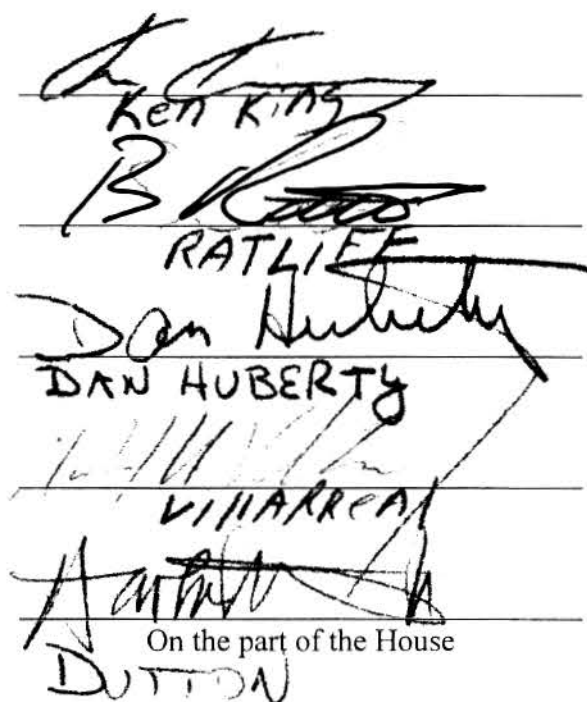 Ken King
B Ratliff
RATLIFF
Dan Huberty
DAN HUBERTY
VIllARReAl
On the part of the House
DUTTON